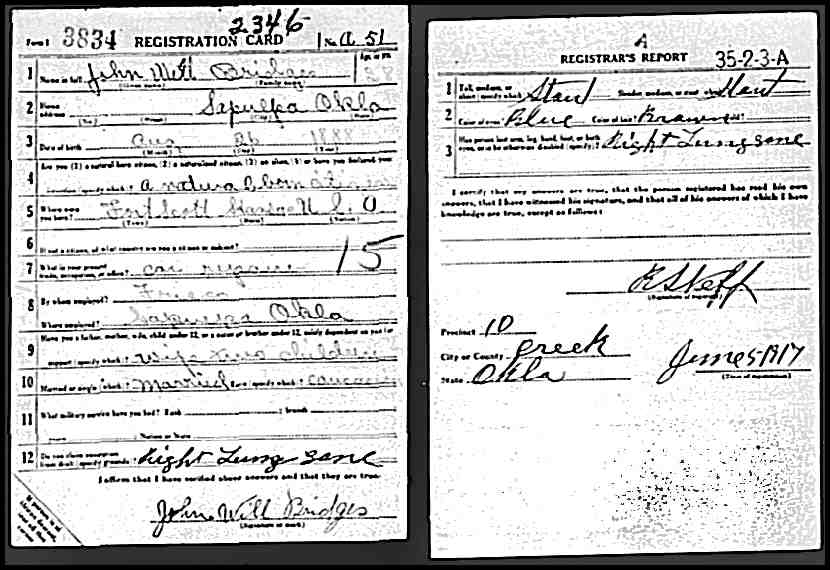 2346
Form 1 3834 REGISTRATION CARD No. a 51
1 Name in full John Will Bridges
(Given name) (Family name)
Age, in yrs. 28
2 Home address Sapulpa Okla
(No.) (Street) (City) (State)
3 Date of birth Aug 26 1888
(Month) (Day) (Year)
Are you (1) a natural born citizen, (2) a naturalized citizen, (3) an alien, (4) or have you declared your
4 intention (specify which)? a natural born citizen
5 Where were you born? Fort Scott Kansas U S
(Town) (State) (Nation)
6 If not a citizen, of what country are you a citizen or subject?
15
7 What is your present trade, occupation, or office? car repair
8 By whom employed? Frisco
Where employed? Sapulpa Okla
Have you a father, mother, wife, child under 12, or a sister or brother under 12, solely dependent on you for
9 support (specify which)? wife two children
10 Married or single (which)? Married Race (specify which)? Caucasian
11 What military service have you had? Rank ; branch
years ; Nation or State
12 Do you claim exemption from draft (specify grounds)? Right Lung gone
I affirm that I have verified above answers and that they are true.
John Will Bridges
(Signature or mark)
A
REGISTRAR'S REPORT 35-2-3-A
1 Tall, medium, or short (specify which)? Slender, medium, or stout (which)? Stout
2 Color of eyes? Blue Color of hair? Brown Bald?
3 Has person lost arm, leg, hand, foot, or both eyes, or is he otherwise disabled (specify)? Right Lung gone
I certify that my answers are true, that the person registered has read his own
answers, that I have witnessed his signature, and that all of his answers of which I have
knowledge are true, except as follows:
(Signature of registrar)
Precinct 10
City or County Creek
State Okla
June 5 1917
(Date of registration)